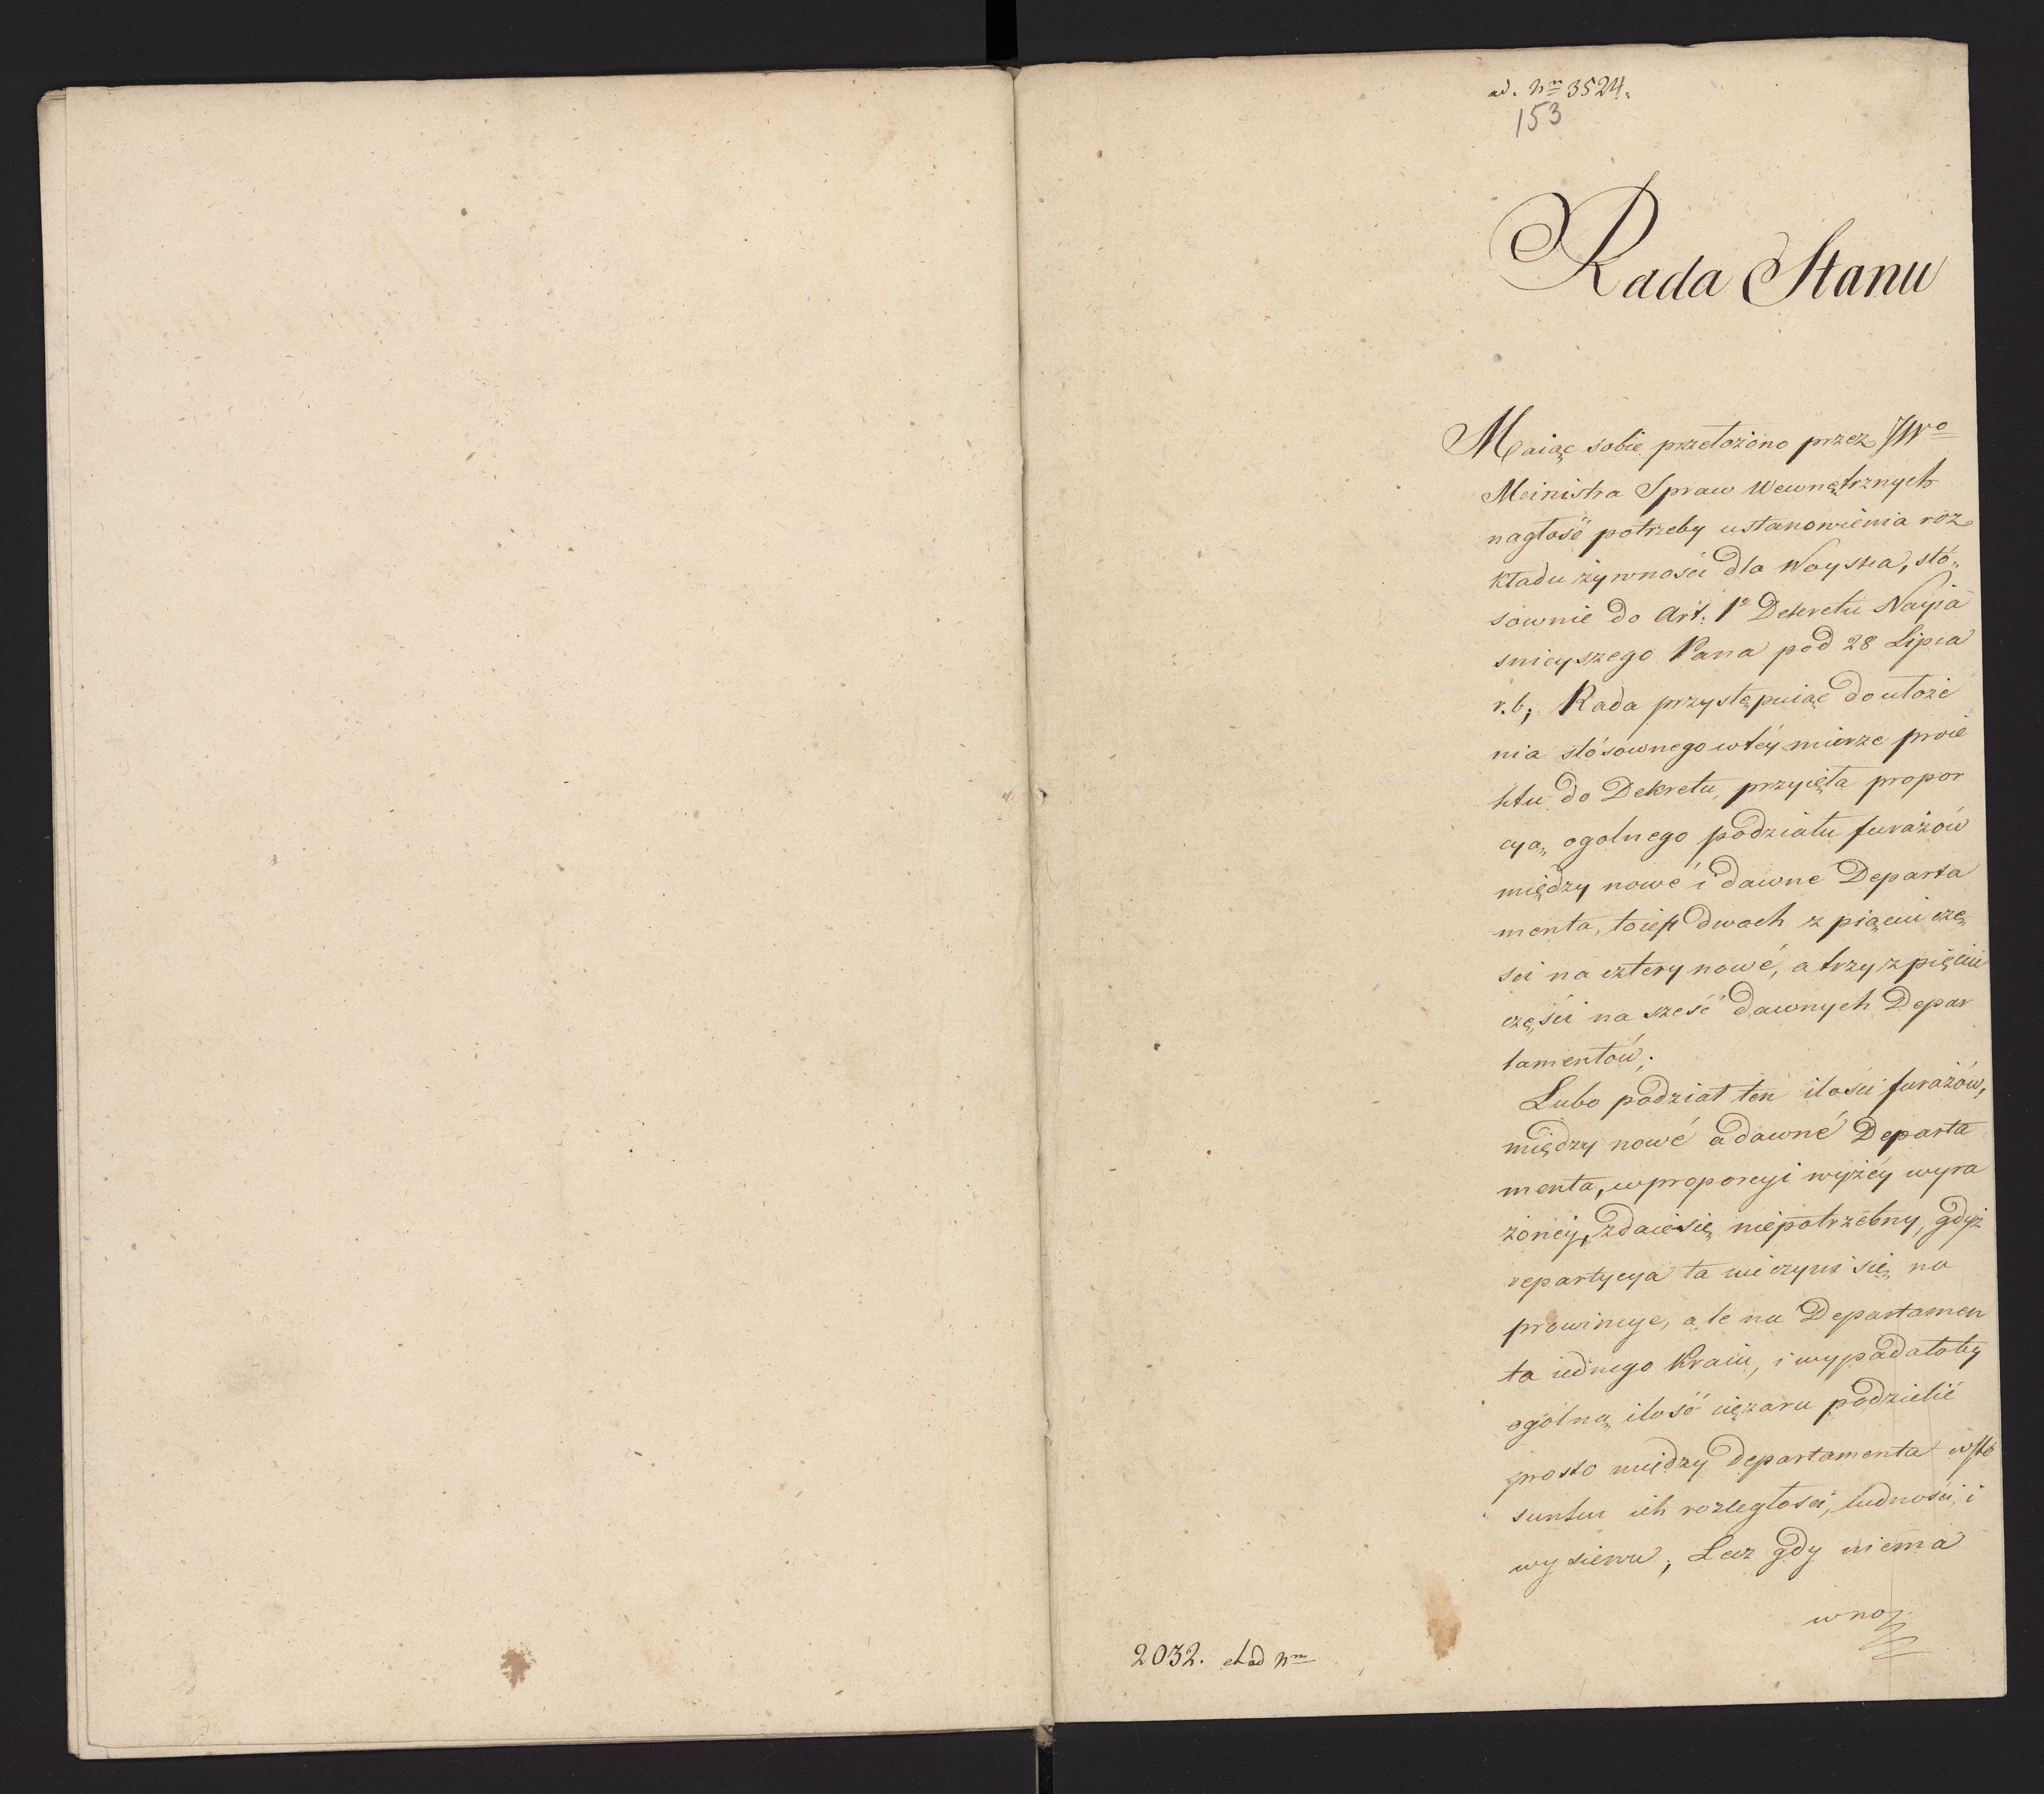 ad. Nm 3524.
153
Rada Stanu
Maiąc sobie przełożono przez JWo
Ministra Spraw Wewnętrznych
nagłość potrzeby ustanowienia roz„
kładu żywności dla Woyska, stó„
sownie do Art: 1o Dekretu Nayia
snieyszego Pana pod 28 Lipca
r.b; Rada przystępuiąc do ułoże
nia stósownego w téy mierze proie
ktu do Dekretu, przyięła propor
cyą ogolnego podziału furażów
między nowé i dawne Departa
menta, toiest dwoch z piąciu czę
sci na cztery nowé, a trzy z pięciu
części na sześć dawnych Depar
tamentów;
Lubo podział ten ilości furażów,
między nowé a dawné Departa
menta, w proporcyi wyżéy wyra
żonéy, zdaie się niepotrzebny, gdyż
repartycya ta nie czyni się na
prowincye, ale na Departamen
ta iednego Kraiu, i wypadałoby
ogólną ilość ciężaru podzielić
prosto między Departamenta w sto
sunku ich rozległości, ludności, i
wysiewu; Lecz gdy niema
w no
2032. et ad Nm